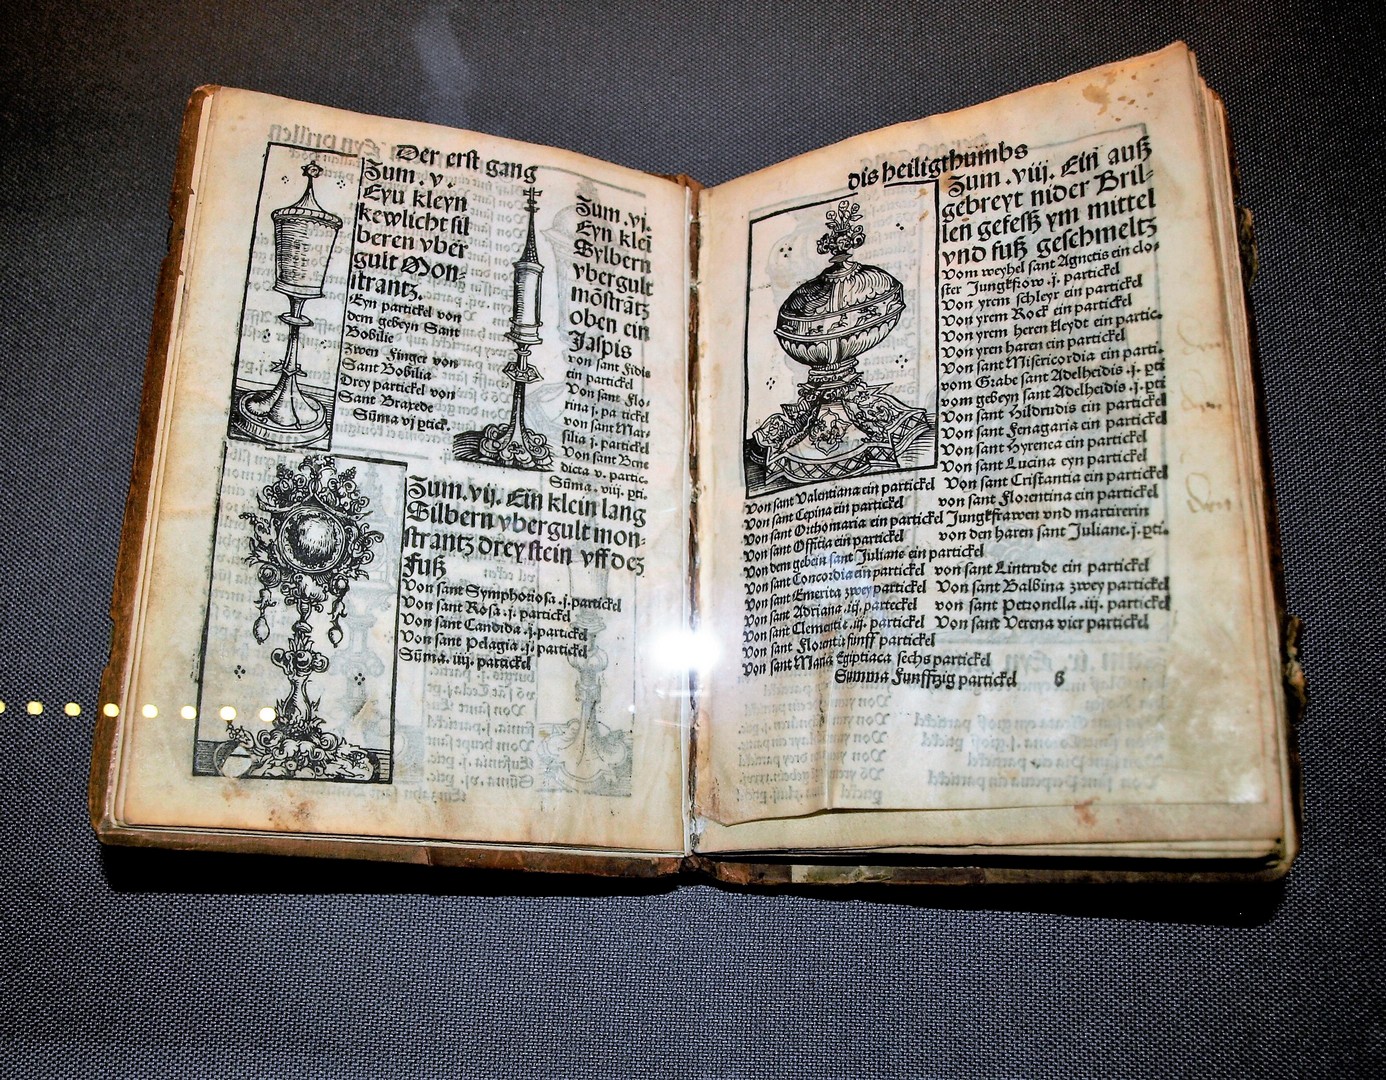 Der erst gang
Zum .v.
Eyn kleyn
kewlicht sil
beren vber
gult Mon-
strantz.
Eyn partickel von
dem gebeyn Sant
Bobilie
Zwen Finger von
Sant Bobilia
Drey partickel von
Sant Braxede
Sũma vj ptick.
Zum .vj.
Eyn kleĩ
Sylbern
vbergult
mõstrãtz
oben ein
Jaspis
von sant Fidis
ein partickel
Von sant Flo-
rina j. pa tickel
von sant Mar-
silia j. partickel
Von sant Bene
dicta v. partic.
Sũma . viij. pti.
Zum .vij. Ein klein lang
Silbern vbergult mon-
strantz drey stein vff des
Fuß
Von sant Symphoriosa .j. partickel
Von sant Rosa .j. partickel
Von sant Candida .j. partickel
Von sant Pelagia .j. partickel
Sũma. iiij. partickel
dis heiligthumbs
Zum .viij. Ein auß
gebreyt nider Bril-
len gefeß ym mittel
vnd fuß geschmeltz
Vom weyhel sant Agnetis ein clo-
ster Jungkfrow .j. partickel
Von yrem schleyr ein partickel
Von yrem Rock ein partickel
Von yrem heren kleydt ein partic.
Von yren haren ein partickel
Von sant Misericordia ein parti.
vom Grabe sant Adelheidis .j. pti
vom gebeyn sant Adelheidis .j. pti
Von sant Hildrudis ein partickel
Von sant Fenagaria ein partickel
Von sant Hyrenea ein partickel
Von sant Lucina eyn partickel
Von sant Valentiana ein partickel Von sant Cristantia ein partickel
Von sant Cepina ein partickel von sant Florentina ein partickel
Von sant Orthomaria ein partickel Jungkfrawen vnd martirerin
Von sant Offitia ein partickel von den haren sant Juliane .j. pti.
Von dem gebein sant Juliane ein partickel
Von sant Concordia ein partickel von sant Lintrude ein partickel
Von sant Emerita zwey partickel Von sant Balbina zwey partickel
Von sant Adriana .iij. partickel von sant Petronella .iij. partickel
Von sant Clementie .iij. partickel Von sant Verena vier partickel
Von sant Florentie funff partickel
Von sant Maria Egiptiaca sechs partickel
Summa Funfftzig partickel 6